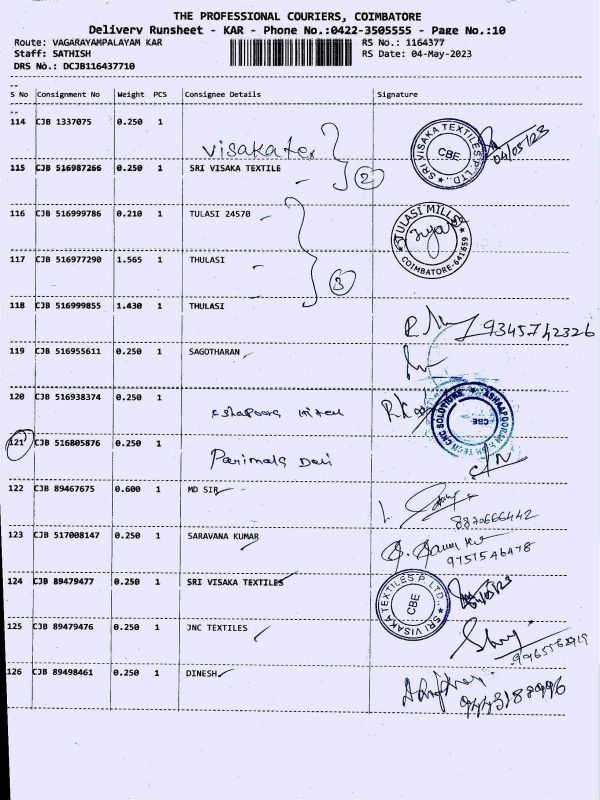 THE PROFESSIONAL COURIERS, COIMBATORE
Delivery Runsheet - KAR - Phone No.:0422-3505555 - Page No.:10
Route: VAGARAYAMPALAYAM KAR RS No.: 1164377
Staff: SATHISH RS Date: 04-May-2023
DRS No.: DCJB116437710
S No Consignment No Weight PCS Consignee Details Signature
114 CJB 1337075 0.250 1
visakatex
SRI VISAKA TEXTILES P LTD., CBE
04/05/23
115 CJB 516987266 0.250 1 SRI VISAKA TEXTILE
2
116 CJB 516999786 0.210 1 TULASI 24570
TULASI MILLS COIMBATORE-641659
117 CJB 516977290 1.565 1 THULASI
3
118 CJB 516999855 1.430 1 THULASI
9345742326
119 CJB 516955611 0.250 1 SAGOTHARAN
120 CJB 516938374 0.250 1
CNC SOLUTIONS CBE
121 CJB 516805876 0.250 1
Parimala Devi
122 CJB 89467675 0.600 1 MD SIR
8870666442
123 CJB 517008147 0.250 1 SARAVANA KUMAR
9751546478
124 CJB 89479477 0.250 1 SRI VISAKA TEXTILES
SRI VISAKA TEXTILES P LTD., CBE
125 CJB 89479476 0.250 1 JNC TEXTILES
126 CJB 89498461 0.250 1 DINESH